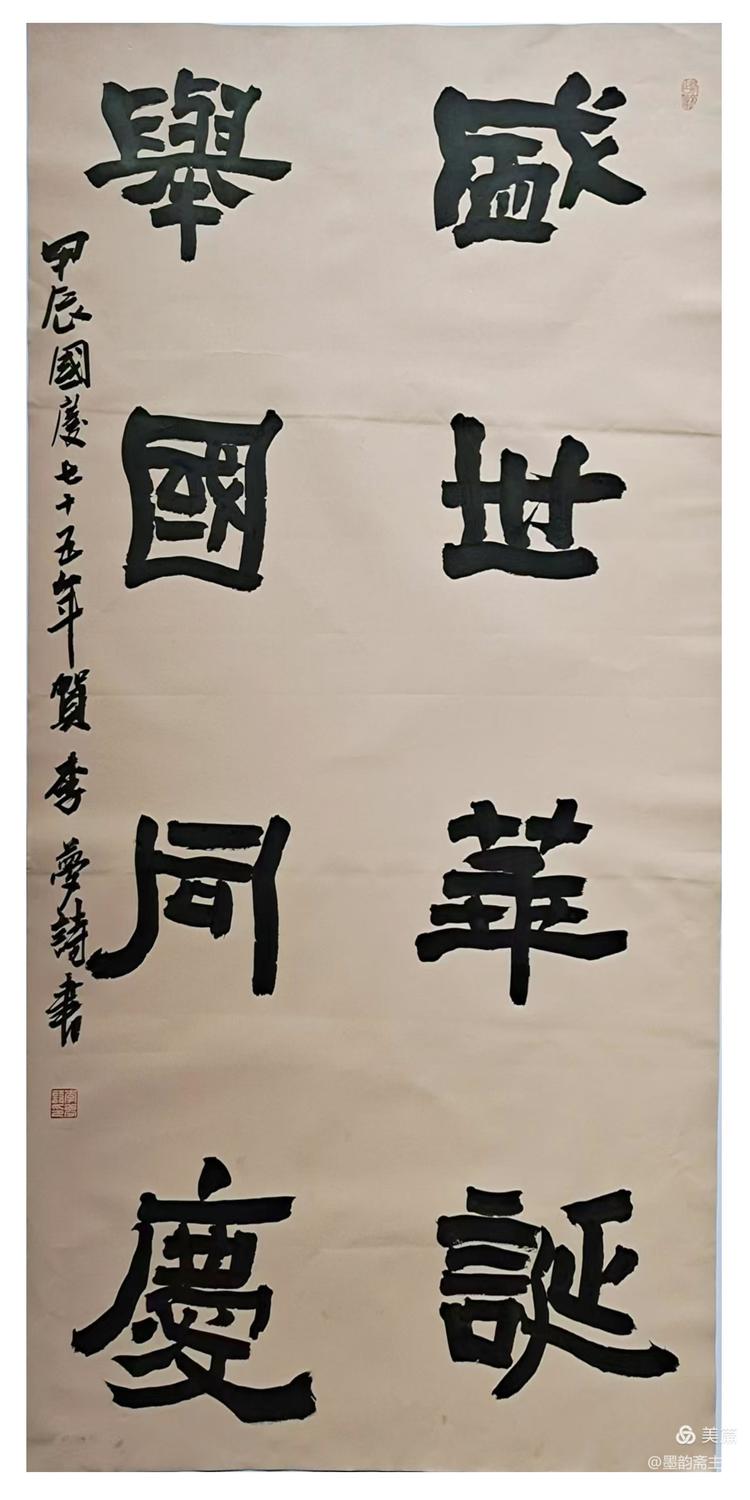 盛世華誕
舉國同慶
甲辰國慶七十五年賀 李夢詩書
美篇
@墨韵斋主